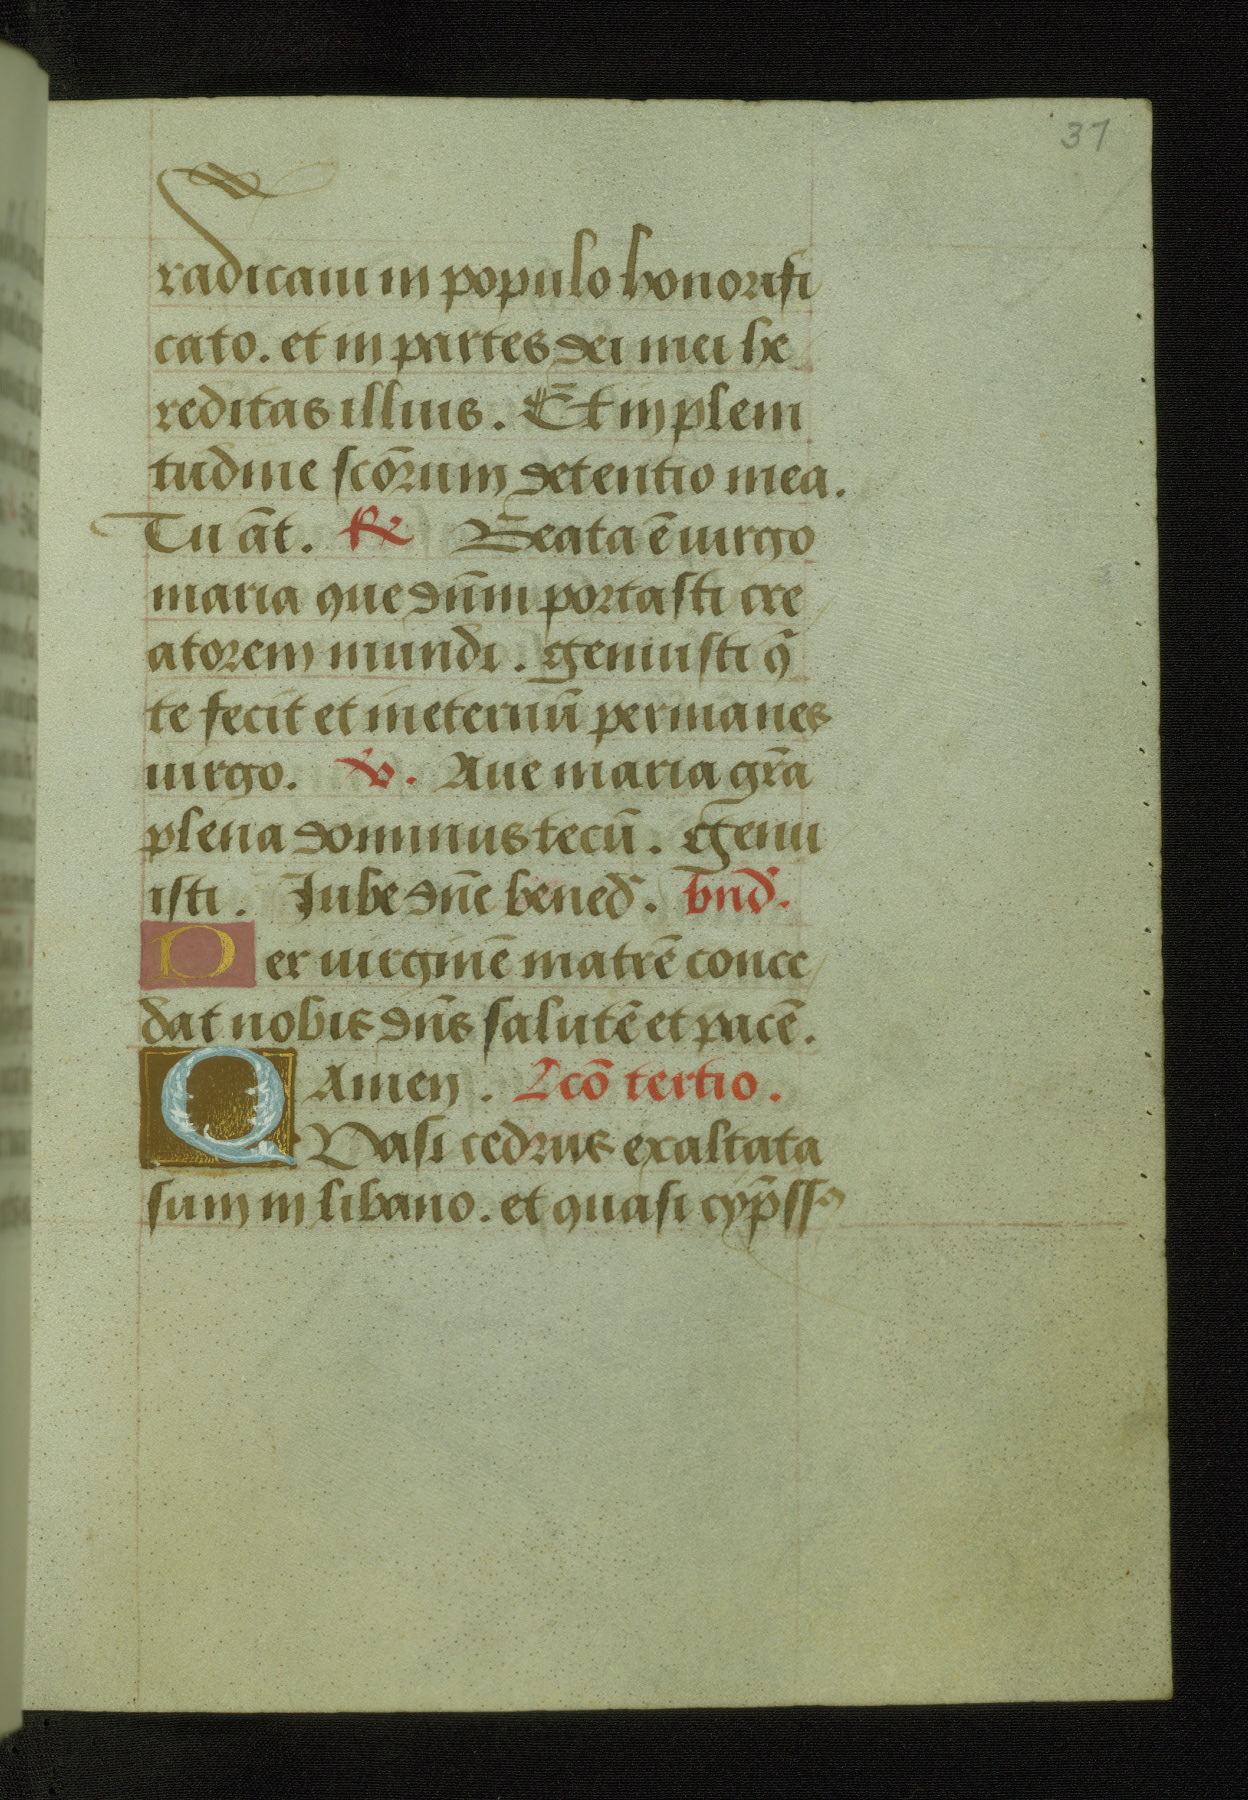 37
radicaui in populo honorifi
cato. et in partes dei mei he
reditas illius. Et in pleni
tudine scōrum detentio mea.
Tu āt. ℟ Beata ē uirgo
maria que dn̄m portasti cre
atorem mundi. Genuisti q̄
te fecit et ineternū permanes
uirgo. ℣. Aue maria gr̄a
plena dominus tecū. Genu
isti. Iube dn̄e bened̄. bn̄d̄.
Per uirginē matrē conce
dat nobis dn̄s salutē et pacē.
Amen. Lcō tertio.
Quasi cedrus exaltata
sum in libano. et quasi cyp̄ssꝰ